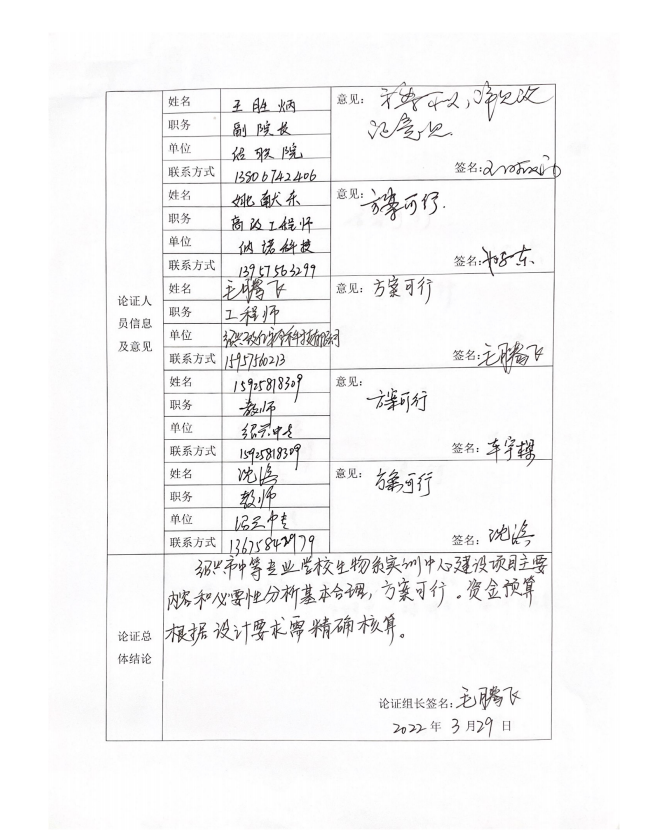 姓名 王胜炳 意见：
职务 副院长
单位 纺职院
联系方式 13806742406 签名：
姓名 姚献东 意见：方案可行.
职务 高级工程师
单位 纳诺科技
联系方式 13957563299 签名：
论证人员信息及意见
姓名 毛腾飞 意见：方案可行
职务 工程师
单位
联系方式 15957560213 签名：毛腾飞
姓名 15925818309 意见：方案可行
职务 教师
单位 绍兴中专
联系方式 15925818309 签名：
姓名 沈滨 意见：方案可行
职务 教师
单位 绍兴中专
联系方式 13675842979 签名：沈滨
论证总体结论
绍兴市中等专业学校生物系实训中心建设项目主要
内容和必要性分析基本合理，方案可行。资金预算
根据设计要求需精确核算。
论证组长签名：毛腾飞
2022年 3月29日